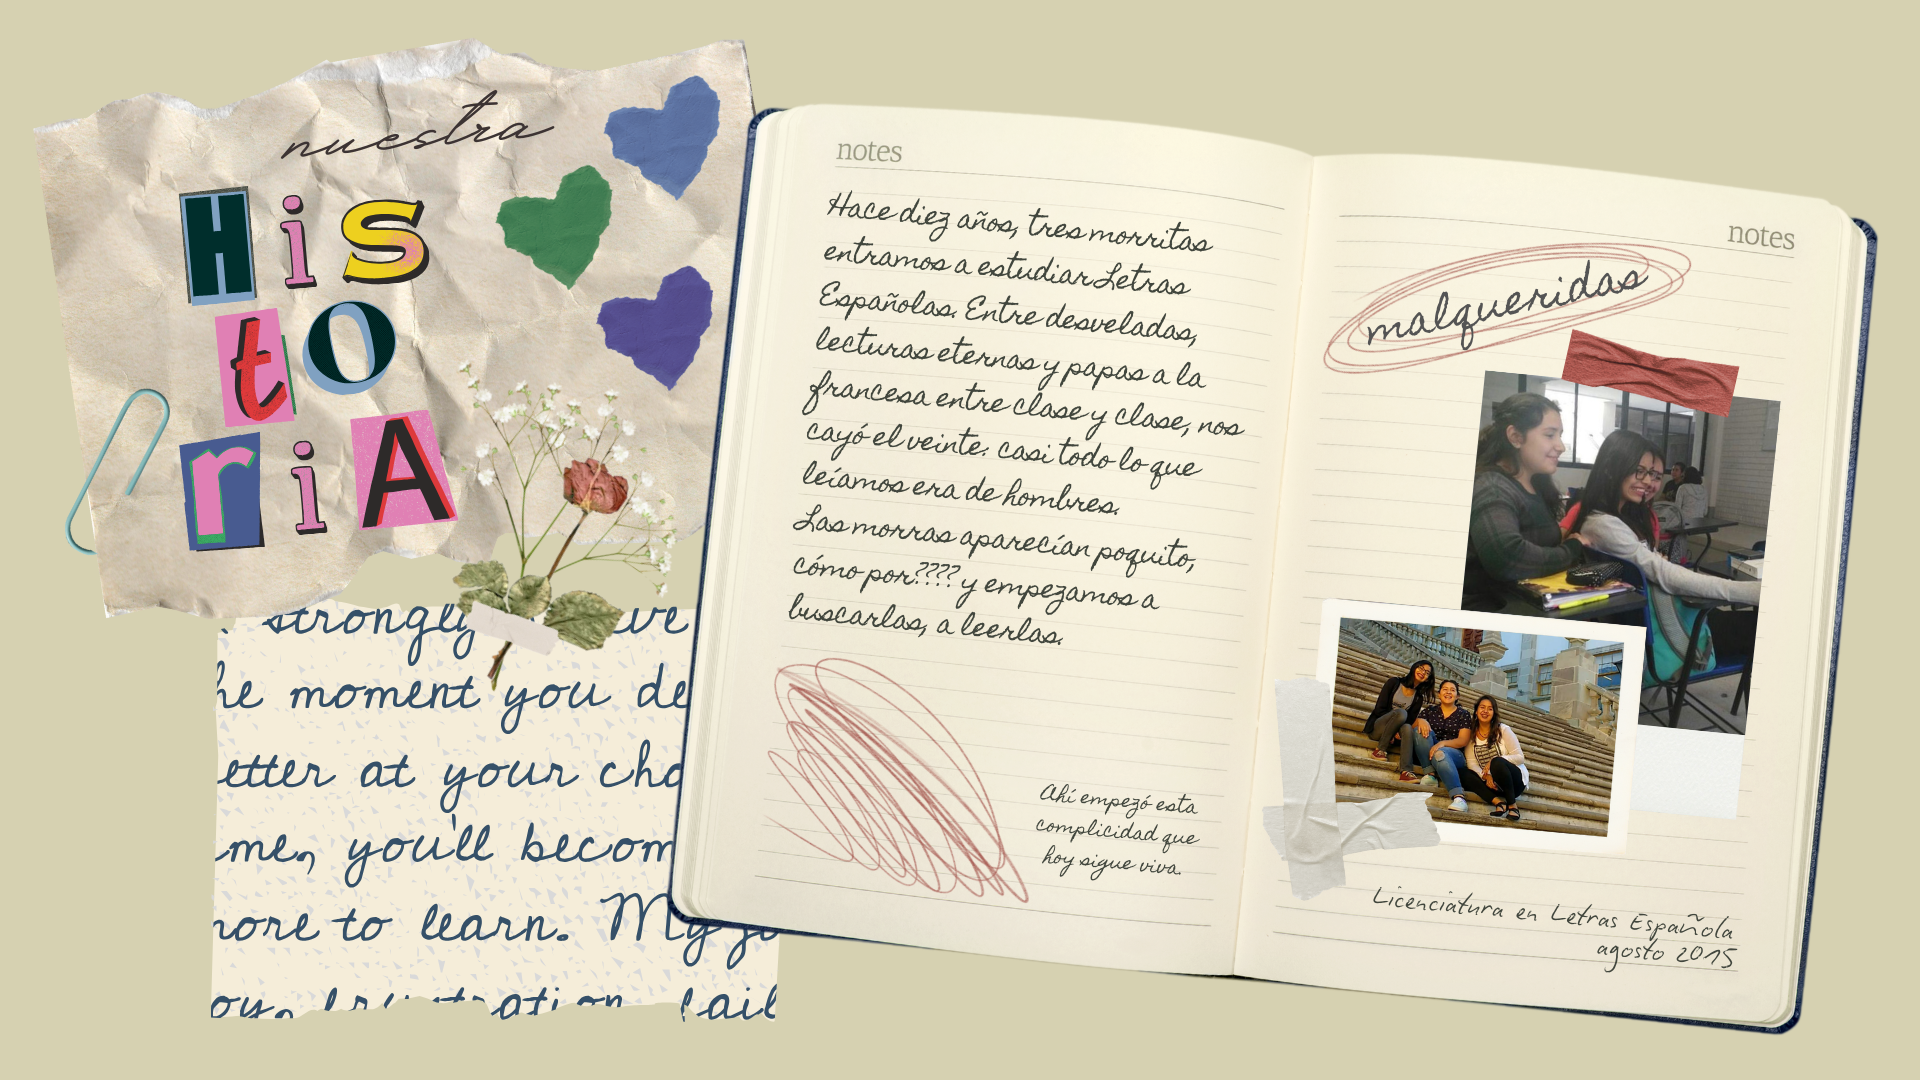 nuestra
His
to
riA
strongly
moment you
at your
you'll
more to learn. My
notes
Hace diez años, tres morritas
entramos a estudiar Letras
Españolas. Entre desveladas,
lecturas eternas y papas a la
francesa entre clase y clase, nos
cayó el veinte: casi todo lo que
leíamos era de hombres.
Las morras aparecían poquito,
cómo por???? y empezamos a
buscarlas, a leerlas.
Ahí empezó esta
complicidad que
hoy sigue viva.
notes
malqueridas
Licenciatura en Letras Española
agosto 2015